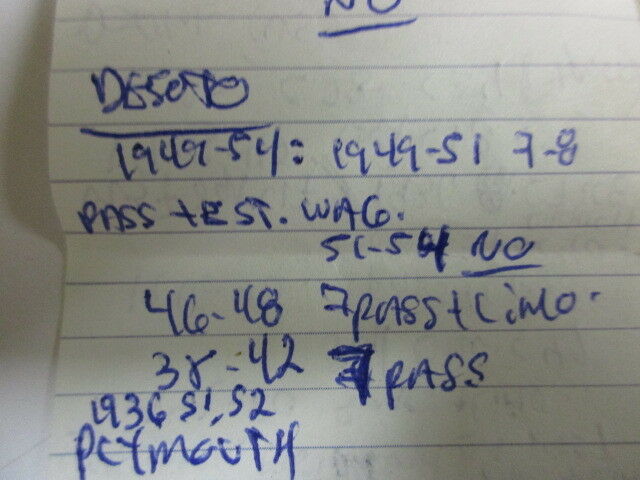 NO
DESOTO
1949-54: 1949-51 7-8
PASS + EST. WAG.
51-54 NO
46-48 7PASS + LiMO.
38-42 7 PASS
1936 S1, S2
PLYMOUTH